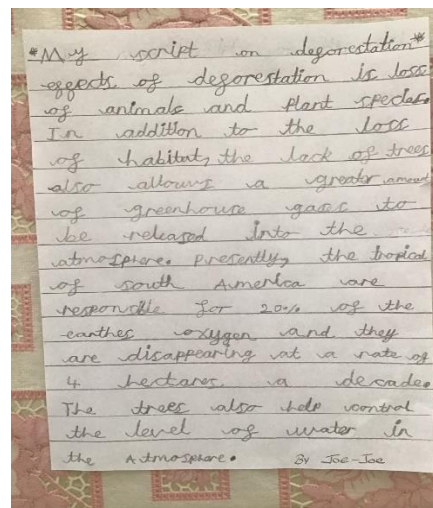 *My script on deforestation*
effects of deforestation is loss
of animals and plant species.
In addition to the loss
of habitat, the lack of trees
also allows a greater amount
of greenhouse gases to
be released into the
atmosphere. Presently, the tropical
of south America are
responsible for 20% of the
earthes oxygen and they
are disappearing at a rate of
4 hectares a decade.
The trees also help control
the level of water in
the Atmosphere. By Joe-Joe